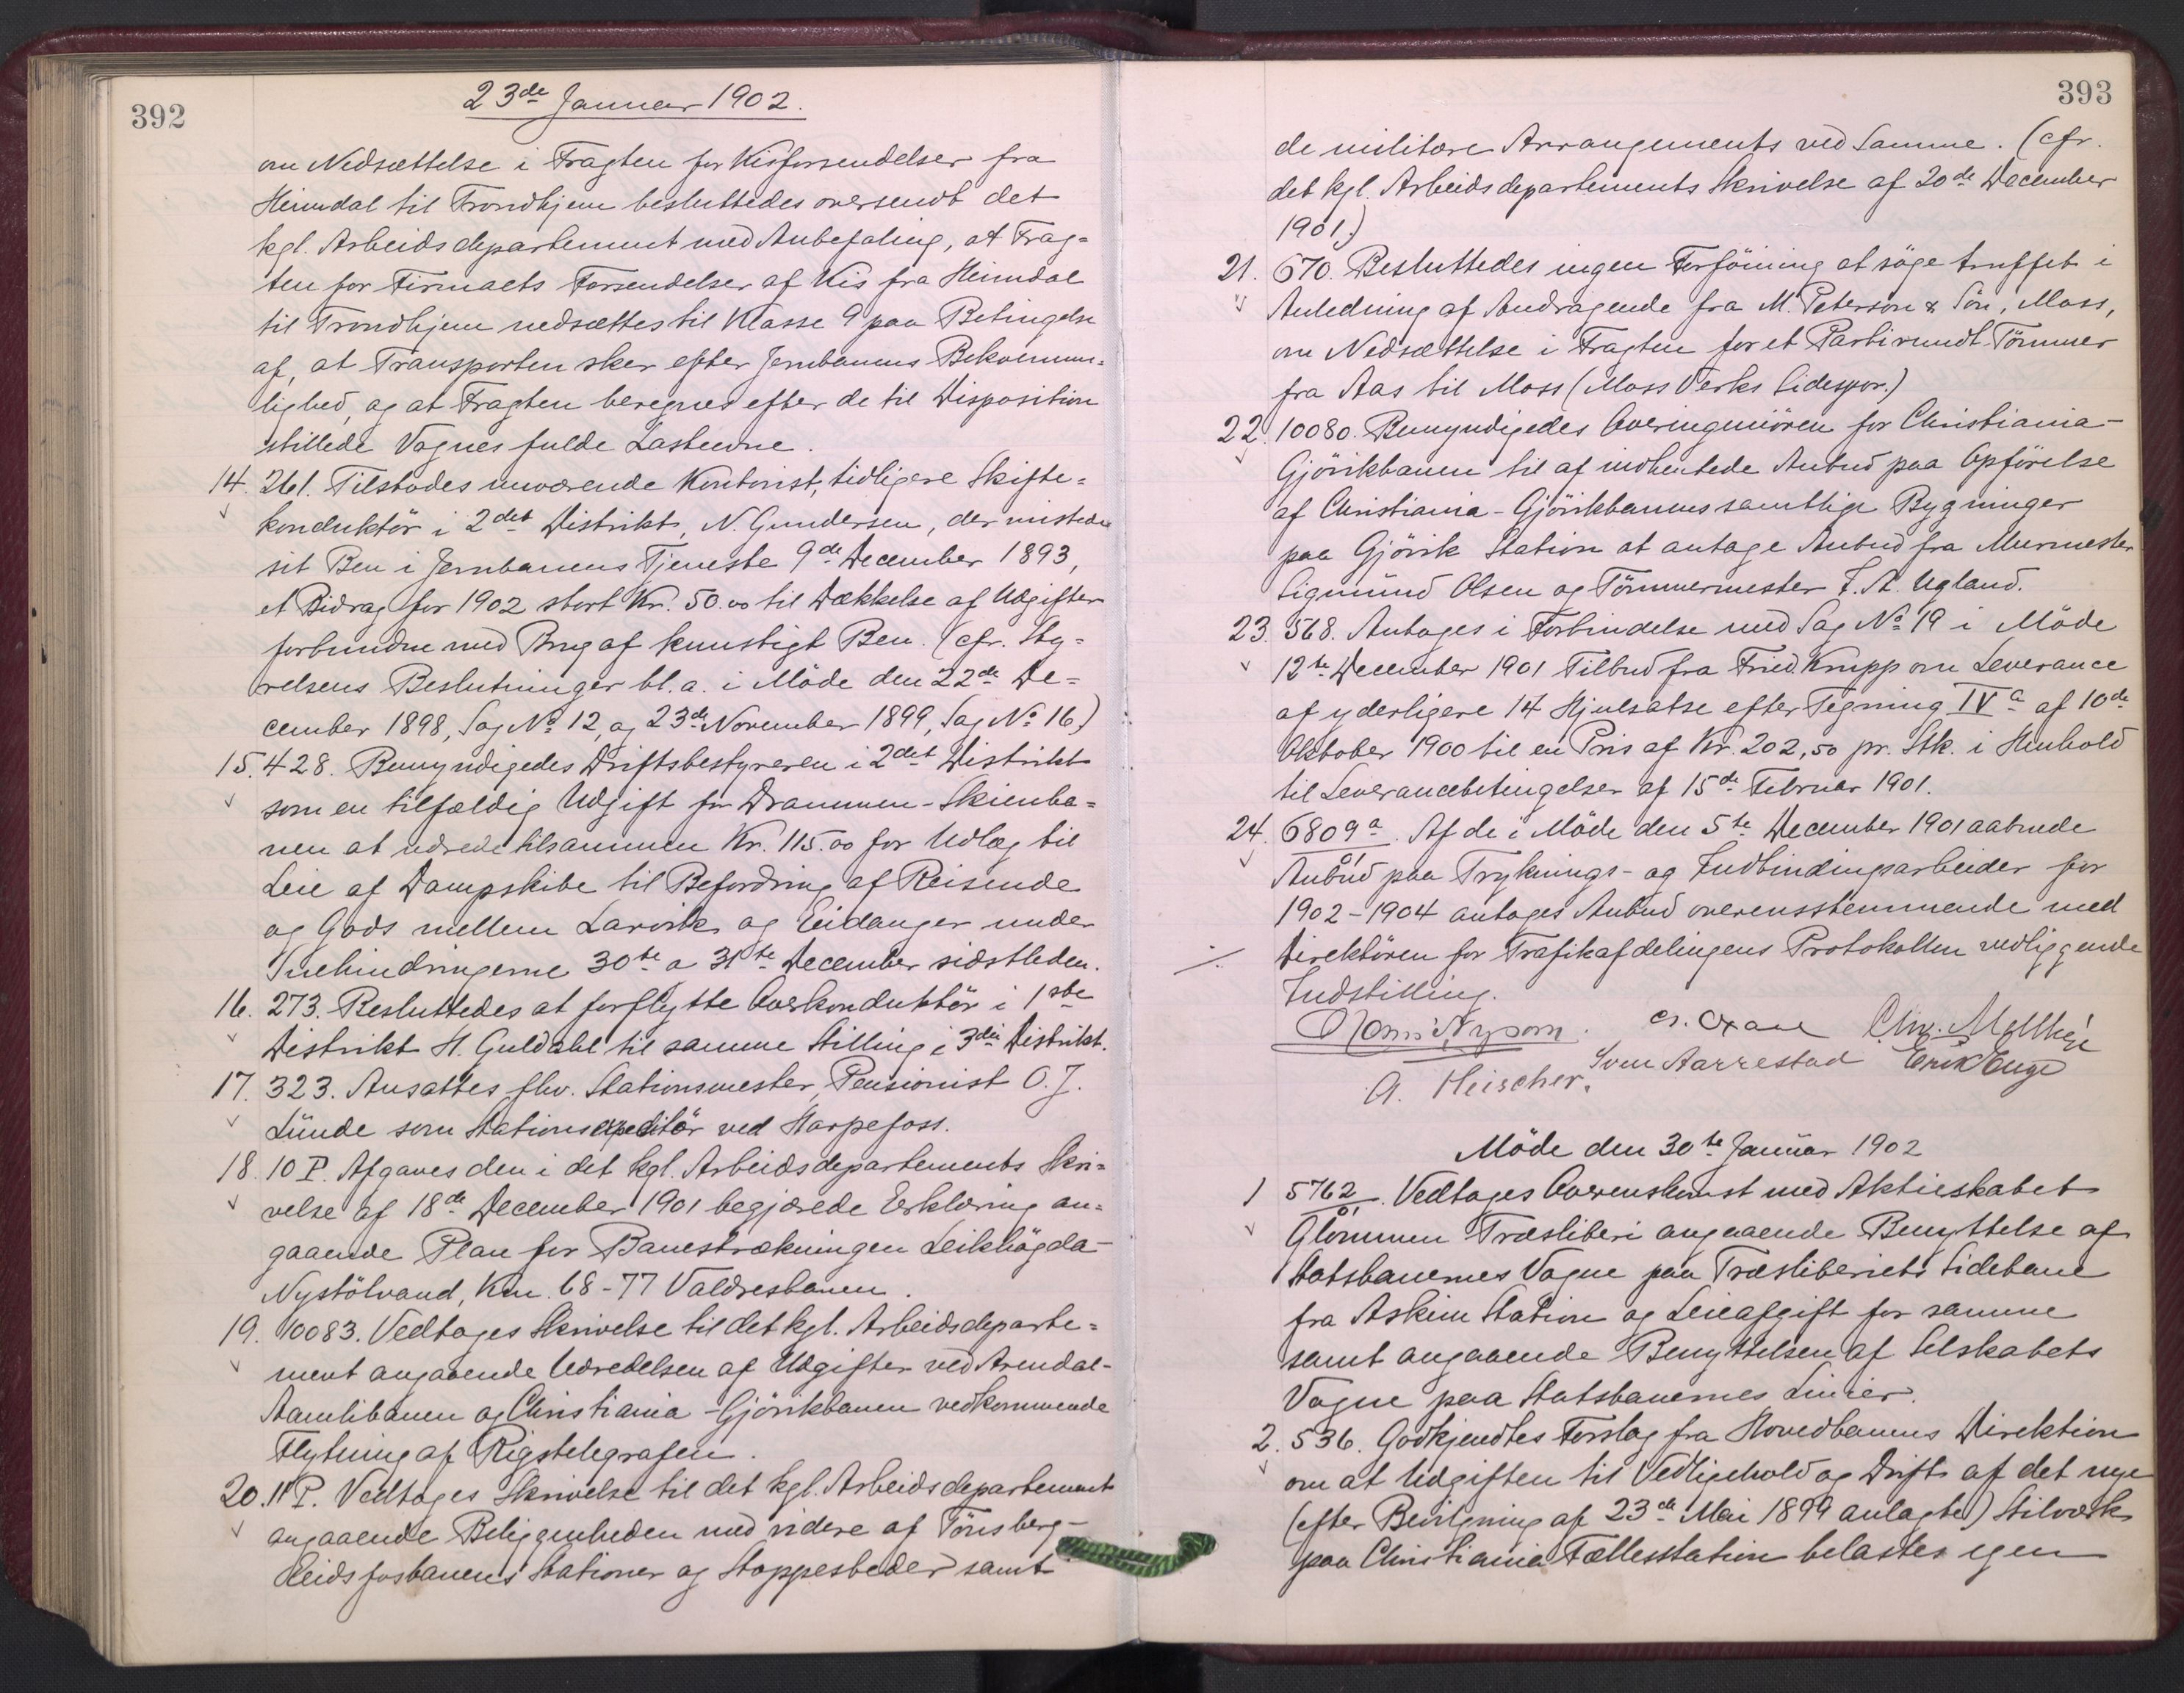 392
23de Januar 1902.
om Nedsættelse i Fragten for Kisforsendelser fra
Heimdal til Trondhjem besluttedes oversendt det
kgl. Arbeidsdepartement med Anbefaling, at Frag=
ten for Firmaets Forsendelser af Kis fra Heimdal
til Trondhjem nedsættes til Klasse 9 paa Betingelse
af, at Transporten sker efter Jernbanens Bekvemme=
lighed, og at Fragten beregnes efter de til Disposition
stillede Vognes fulde Lasteevne.
14. 261. Tilstodes nuværende Kontorist, tidligere Skifte=
konduktör i 2det Distrikt, N. Gundersen, der mistede
sit Ben i Jernbanens Tjeneste 9de December 1893,
et Bidrag for 1902 stort Kr. 50.00 til Dækkelse af Udgifter
forbundne med Brug af kunstigt Ben. (cfr. Sty=
relsens Beslutninger bl.a. i Möde den 22de De=
cember 1898, Sag No 12, og 23de November 1899, Sag No 16.)
15. 428. Bemyndigedes Driftsbestyreren i 2det Distrikt
som en tilfældig Udgift for Drammen-Skienba=
nen at udrede tilsammen Kr. 115.00 for Udlæg til
Leie af Dampskibe til Befordring af Reisende
og Gods mellem Larvik og Eidanger under
Snehindringerne 30te a 31te December sidstleden.
16. 273. Besluttedes at forflytte Overkonduktör i 1ste
Distrikt H. Guldahl til samme Stilling i 3die Distrikt.
17. 323. Ansattes fhv. Stationsmester, Pensionist O. J.
Lunde som Stationsexpeditör ved Harpefoss.
18. 10 P. Afgaves den i det kgl. Arbeidsdepartements Skri=
velse af 18de December 1901 begjærede Erklæring an=
gaaende Plan for Banestrækningen Leikhögda-
Nystölvand, Km. 68-77 Valdresbanen.
19. 10083. Vedtoges Skrivelse til det kgl. Arbeidsdeparte=
ment angaaende Udredelsen af Udgifter ved Arendal-
Aamlibanen og Christiania-Gjövikbanen vedkommende
Flytning af Rigstelegrafen.
20. 11 P. Vedtoges Skrivelse til det kgl. Arbeidsdepartement
angaaende Beliggenheden med videre af Tönsberg-
Eidsfosbanens Stationer og Stoppesteder samt
393
de militære Arrangements ved Samme. (cfr.
det kgl. Arbeidsdepartements Skrivelse af 20de December
1901.)
21. 670. Besluttedes ingen Forföining at söge truffet i
Anledning af Andragende fra M. Peterson & Sön, Moss,
om Nedsættelse i Fragten for et Parti rundt Tömmer
fra Aas til Moss (Moss Verks Sidespor.)
22. 10080. Bemyndigedes Overingeniören for Christiania-
Gjövikbanen til af indhentede Anbud paa Opförelse
af Christiania-Gjövikbanens samtlige Bygninger
paa Gjövik Station at antage Anbud fra Murmester
Sigmund Olsen og Tömmermester F. A. Ugland.
23. 568. Antoges i Forbindelse med Sag No 19 i Möde
12te December 1901 Tilbud fra Fried. Krupp om Leverance
af yderligere 14 Hjulsatse efter Tegning IVa af 10de
Oktober 1900 til en Pris af Kr. 202,50 pr. Stk. i Henhold
til Leverancebetingelser af 15de Februar 1901.
24. 6809a/01. Af de i Möde den 5te December 1901 aabnede
Anbud paa Tryknings- og Indbindingsarbeider for
1902-1904 antoges Anbud overensstemmende med
·/. Direktören for Trafikafdelingens Protokollen vedliggende
Indstilling.
Hans Nysom. Chr. Mellbye
A. Fleischer. Sven Aarrestad Erik Enge
Möde den 30te Januar 1902
1 5762/01. Vedtoges Overenskomst med Aktieskabet
Glommen Træsliberi angaaende Benyttelse af
Statsbanernes Vogne paa Træsliberiets Sidebane
fra Askim Station og Leieafgift for samme
samt angaaende Benyttelsen af Selskabets
Vogne paa Statsbanernes Linier.
2. 536. Godkjendtes Forslag fra Hovedbanens Direktion
om at Udgiften til Vedligehold og Drift af det nye
(efter Bevilgning af 23de Mai 1899 anlagte) Stilværk
paa Christiania Fællesstation belastes igen